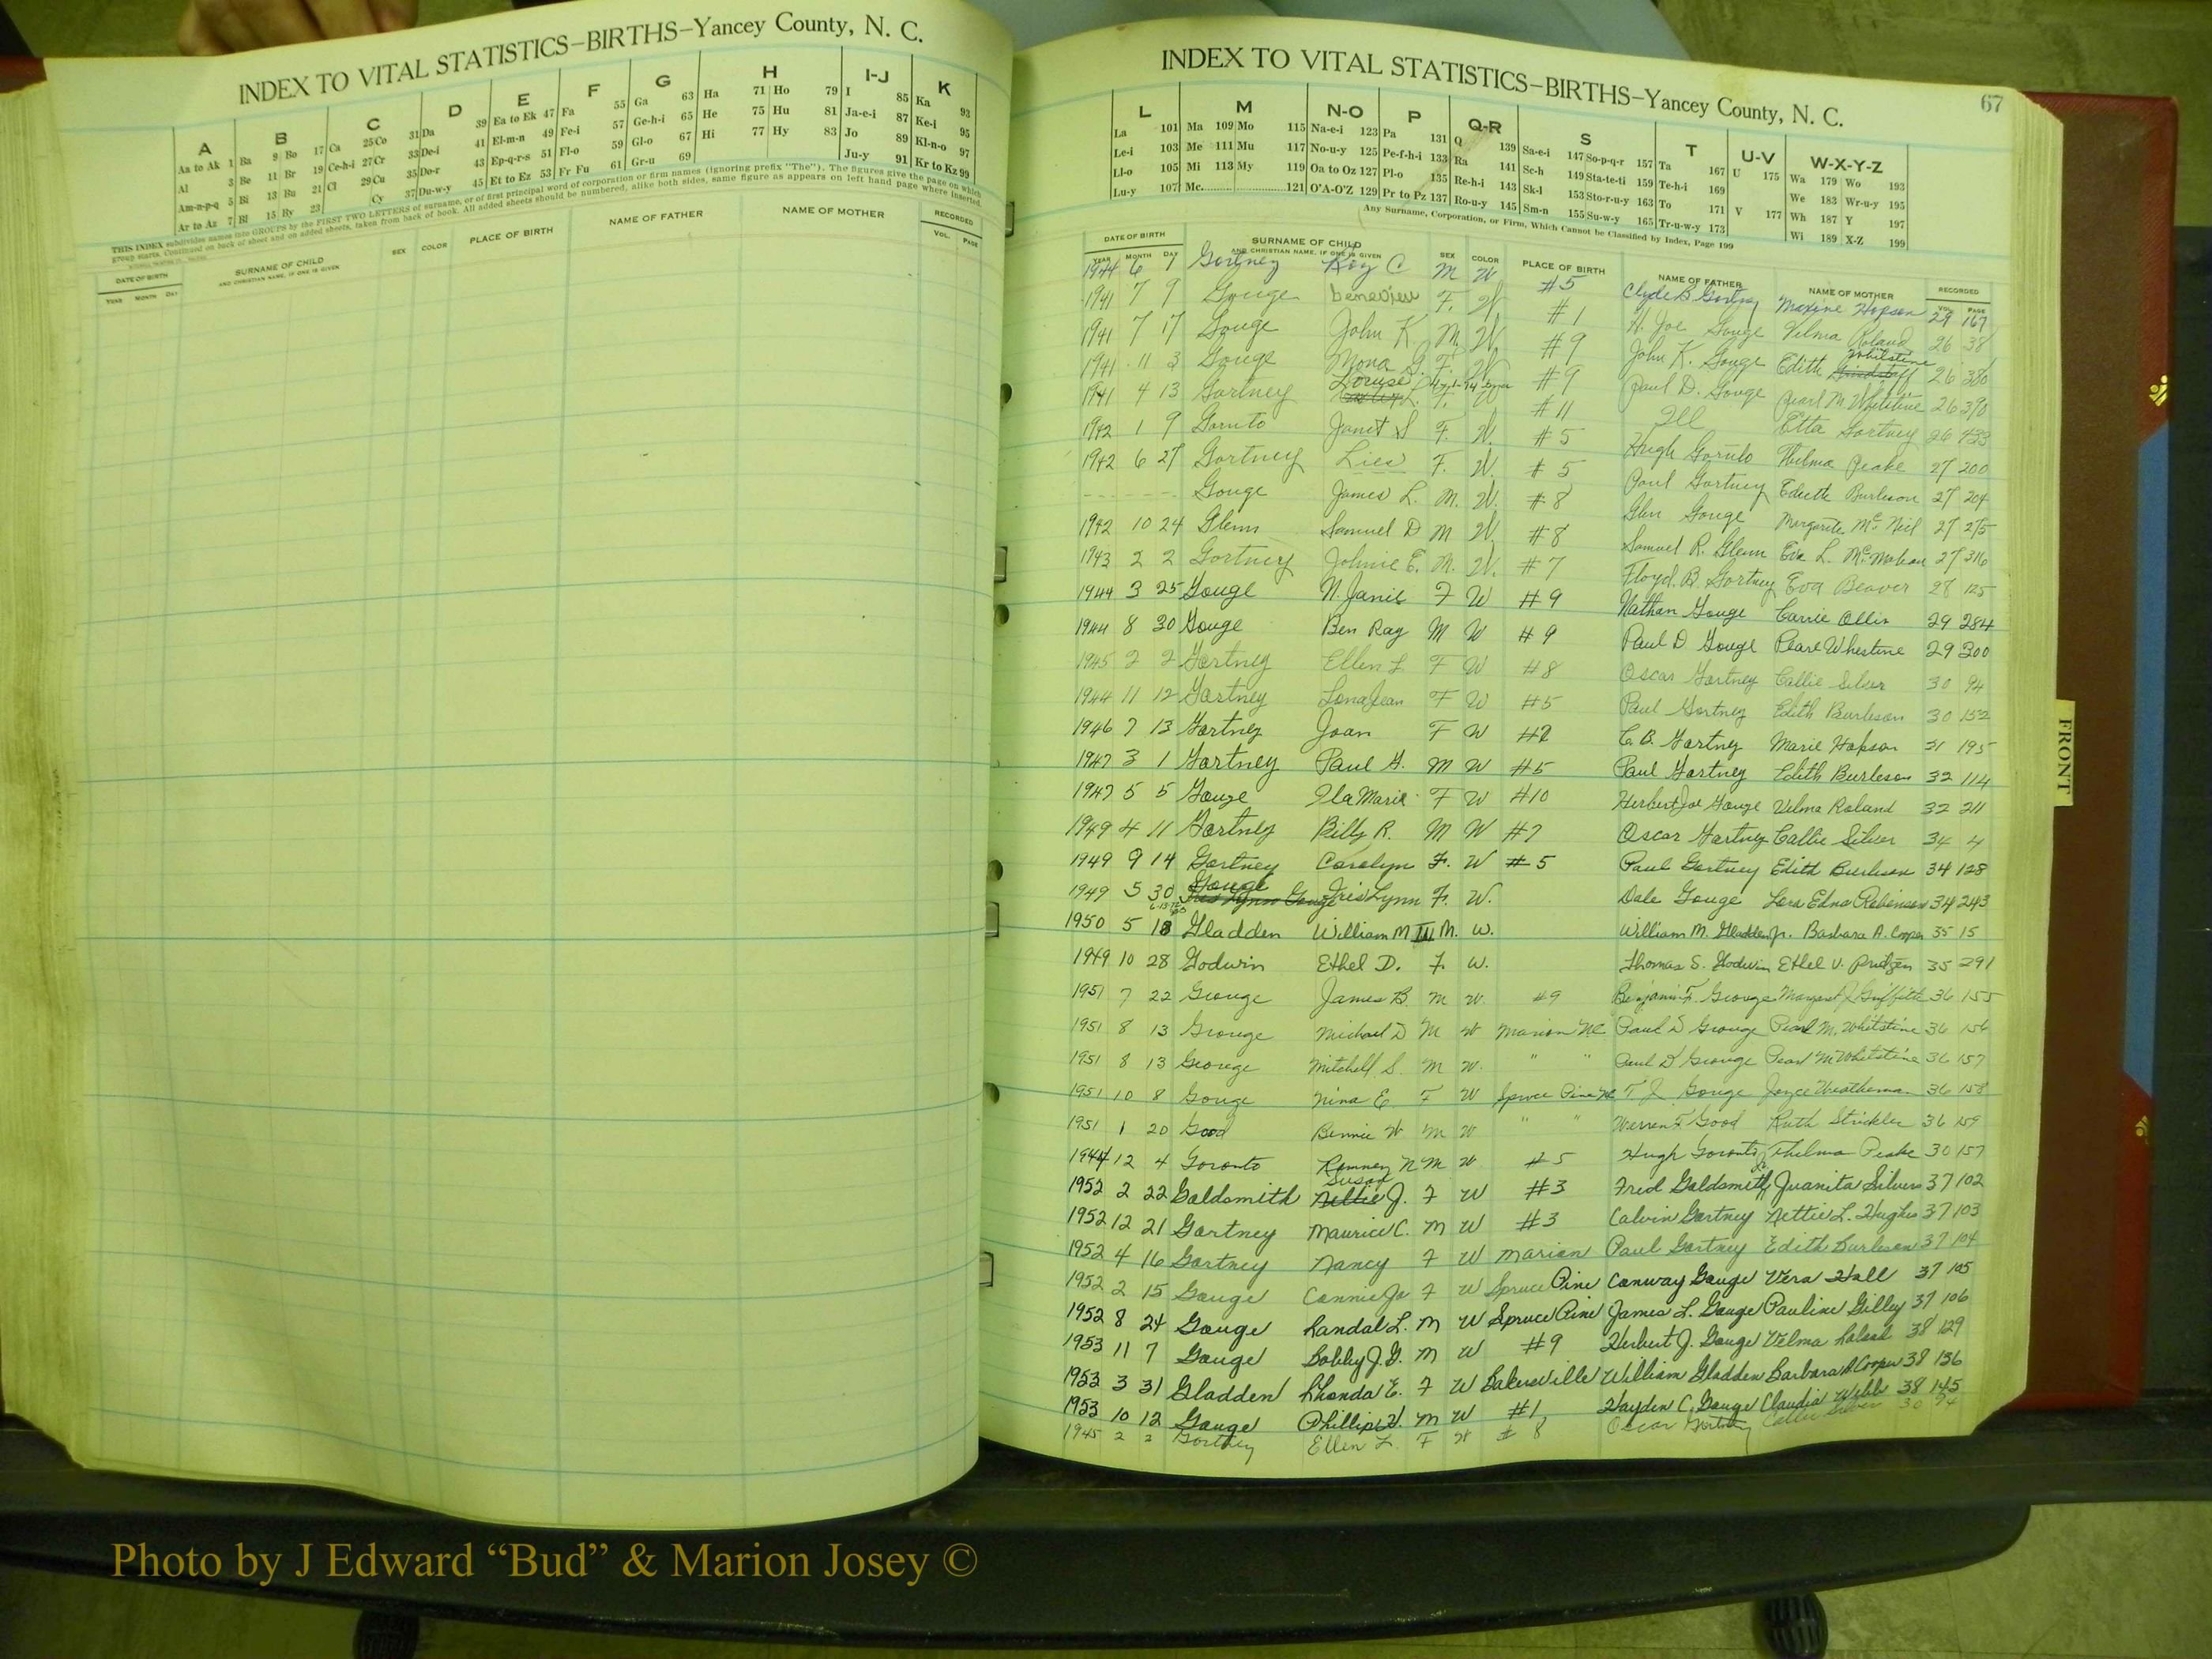 INDEX TO VITAL STATISTICS–BIRTHS–Yancey County, N. C.
A B C D E F G H I-J K
Aa to Ak 1 Ba 9 Bo 17 Ca 25 Co 31 Da 39 Ea to Ek 47 Fa 55 Ga 63 Ha 71 Ho 79 I 85 Ka 93
Al 3 Be 11 Br 19 Ce-h-i 27 Cr 33 De-i 41 El-m-n 49 Fe-i 57 Ge-h-i 65 He 75 Hu 81 Ja-e-i 87 Ke-i 95
Am-n-p-q 5 Bi 13 Bu 21 Cl 29 Cu 35 Do-r 43 Ep-q-r-s 51 Fl-o 59 Gl-o 67 Hi 77 Hy 83 Jo 89 Kl-n-o 97
Ar to Az 7 Bl 15 By 23 Cy 37 Du-w-y 45 Et to Ez 53 Fr Fu 61 Gr-u 69 Ju-y 91 Kr to Kz 99
THIS INDEX subdivides names into GROUPS by the FIRST TWO LETTERS of surname, or of first principal word of corporation or firm names (ignoring prefix "The"). The figures give the page on which
group starts. Continued on back of sheet and on added sheets, taken from back of book. All added sheets should be numbered, alike both sides, same figure as appears on left hand page where inserted.
DATE OF BIRTH SURNAME OF CHILD SEX COLOR PLACE OF BIRTH NAME OF FATHER NAME OF MOTHER RECORDED
YEAR MONTH DAY AND CHRISTIAN NAME, IF ONE IS GIVEN VOL. PAGE
INDEX TO VITAL STATISTICS–BIRTHS–Yancey County, N. C. 67
L M N-O P Q-R S T U-V W-X-Y-Z
La 101 Ma 109 Mo 115 Na-e-i 123 Pa 131 Q 139 Sa-e-i 147 So-p-q-r 157 Ta 167 U 175 Wa 179 Wo 193
Le-i 103 Me 111 Mu 117 No-u-y 125 Pe-f-h-i 133 Ra 141 Sc-h 149 Sta-te-ti 159 Te-h-i 169 We 183 Wr-u-y 195
Ll-o 105 Mi 113 My 119 Oa to Oz 127 Pl-o 135 Re-h-i 143 Sk-l 153 Sto-r-u-y 163 To 171 V 177 Wh 187 Y 197
Lu-y 107 Mc 121 O'A-O'Z 129 Pr to Pz 137 Ro-u-y 145 Sm-n 155 Su-w-y 165 Tr-u-w-y 173 Wi 189 X-Z 199
Any Surname, Corporation, or Firm, Which Cannot be Classified by Index, Page 199
DATE OF BIRTH SURNAME OF CHILD SEX COLOR PLACE OF BIRTH NAME OF FATHER NAME OF MOTHER RECORDED
YEAR MONTH DAY AND CHRISTIAN NAME, IF ONE IS GIVEN VOL. PAGE
1944 6 1 Gortney Roy C M W #5 Clyde B Gortney Maxine Hopson 29 167
1941 7 9 Gouge Geneview F. W #1 H. Joe Gouge Velma Roland 26 38
1941 7 17 Gouge John K. M. W. #9 John K. Gouge Edith Whitstine 26 380
1941 11 3 Gouge Mona G. F. W #9 Paul D. Gouge Pearl M. Whitstine 26 390
1941 4 13 Gortney Louise L. F. W #11 Ill Etta Gortney 26 433
1942 1 9 Goruto Janet S F. W. #5 Hugh Goruto Thelma Peake 27 200
1942 6 27 Gortney Lies F. W. #5 Paul Gortney Edith Burleson 27 204
Gouge James L. M. W. #8 Glen Gouge Margarite McNeil 27 275
1942 10 24 Glenn Samuel D M W. #8 Samuel R. Glenn Eva L. McMahan 27 316
1943 2 2 Gortney Johnie E. M. W. #7 Floyd. B. Gortney Eva Beaver 28 125
1944 3 25 Gouge N. Janis F W #9 Nathan Gouge Carrie Ollis 29 284
1944 8 30 Gouge Ben Ray M W #9 Paul D Gouge Pearl Whestine 29 300
1945 2 2 Gortney Ellen L F W #8 Oscar Gortney Callie Silver 30 94
1944 11 12 Gortney Lona Jean F W #5 Paul Gortney Edith Burleson 30 152
1946 7 13 Gortney Joan F W #2 C. B. Gortney Marie Hobson 31 195
1947 3 1 Gortney Paul G. M W #5 Paul Gortney Edith Burleson 32 114
1947 5 5 Gouge Ila Marie F W #10 Herbert Joe Gouge Velma Roland 32 211
1949 4 11 Gortney Billy R. M W #7 Oscar Gortney Callie Silver 34 4
1949 9 14 Gortney Carolyn F. W #5 Paul Gortney Edith Burleson 34 128
1949 5 30 Gouge Iris Lynn F. W. Dale Gouge Lora Edna Robinson 34 243
1950 5 18 Gladden William M III M. W. William M. Gladden Jr. Barbara A. Cooper 35 15
1949 10 28 Godwin Ethel D. F. W. Thomas S. Godwin Ethel V. 35 291
1951 7 22 Grouge James B. M W. #9 Benjamin F. Grouge Margaret J Griffith 36 155
1951 8 13 Grouge Michael D M W Marion NC Paul D Grouge Pearl M. Whitstine 36 156
1951 8 13 Grouge Mitchell S. M W. " " Paul D Grouge Pearl M Whitstine 36 157
1951 10 8 Gouge Nina E F W Spruce Pine NC T J Gouge Joyce Weatherman 36 158
1951 1 20 Good Bennie W M W " " Warren F Good Ruth Strickler 36 159
1944 12 4 Goronto Romney N M W #5 Hugh Goronto Thelma Peake 30 157
1952 2 22 Goldsmith Susan J. F W #3 Fred Goldsmith Juanita Silvers 37 102
1952 12 21 Gortney Maurice C. M W #3 Calvin Gortney Nettie L. Hughes 37 103
1952 4 16 Gortney Nancy F W Marion Paul Gortney Edith Burleson 37 104
1952 2 15 Gouge Connie Jo F W Spruce Pine Conway Gouge Vera Hall 37 105
1952 8 24 Gouge Randal L. M W Spruce Pine James L. Gouge Pauline Gilley 37 106
1953 11 7 Gouge Bobby J. G. M W #9 Herbert J. Gouge Velma 38 129
1953 3 31 Gladden Rhonda E. F W Bakersville William Gladden Barbara A. Cooper 38 136
1953 10 12 Gouge Phillip H. M W #1 Hayden C. Gouge Claudia Webb 38 145
1945 2 2 Gortney Ellen L. F W # 8 Oscar Gortney Callie Silver 30 94
FRONT
Photo by J Edward “Bud” & Marion Josey ©